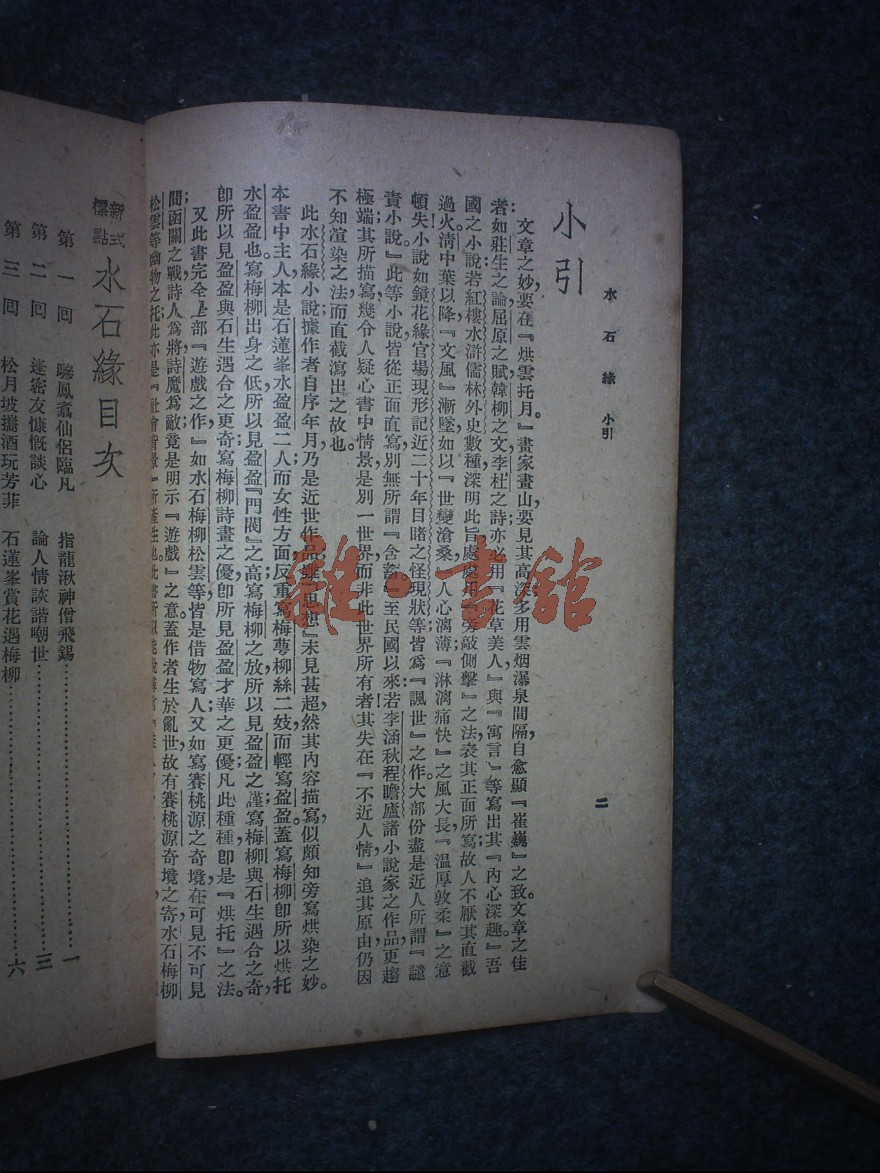 水石緣 小引
二
小引
文章之妙，要在『烘雲托月。』畫家畫山，要見其高深，多用雲烟瀑泉間隔，自愈顯『崔巍』之致。文章之佳
者：如莊生之論，屈原之賦，韓柳之文，李杜之詩，亦必用『花草美人』與『寓言』等寫出其『內心深趣。』吾
國之小說，若紅樓水滸儒林外史數種，深明此旨，處處用『旁敲側擊』之法，表其正面所寫，故人不厭其直截
過火。清中葉以降，『文風』漸墜，如以『世變滄桑，人心漓薄，『淋漓痛快』之風大長，『溫厚敦柔』之意
頓失！小說如鏡花緣官場現形記近二十年目睹之怪現狀等，皆爲『諷世』之作。大部份盡是近人所謂『譴
責小說』此等小說，皆從正面直寫，別無所謂『含蓄。』至民國以來，若李涵秋程瞻廬諸小說家之作品，更趨
極端，其所描寫，幾令人疑心書中情景，是別一世界，而非此世界所有者，其失在『不近人情』追其原由，仍因
不知渲染之法，而直截瀉出之故也。
此水石緣小說，據作者自序年月，乃是近世作品，雖『思想』未見甚超，然其內容描寫，似頗知旁寫烘染之妙。
本書中主人，本是石蓮峯水盈盈二人，而女性方面，反重寫梅萼柳絲二妓，而輕寫盈盈，蓋寫梅柳卽所以烘托
水盈盈也。寫梅柳出身之低，所以見盈盈『門閥』之高，寫梅柳之放，所以見盈盈之謹；寫梅柳與石生遇合之奇，
卽所以見盈盈與石生遇合之更奇；寫梅柳詩畫之優，卽所見盈盈才華之更優，凡此種種，卽是『烘托』之法。
又此書完全上部『遊戲之作』如水石梅柳松雲等，皆是借物寫人；又如寫賽桃源之奇境，在可見不可見
間；函關之戰，詩人爲將，詩魔爲敵，竟是明示『遊戲』之意，蓋作者生於亂世，故有賽桃源奇境之寄，水石梅柳
松雲等幽物之托，此亦是『社會背景』所產生也。此書所
新式標點 水石緣目次
第一回 驂鳳翥仙侶臨凡 指龍湫神僧飛錫……一
第二回 逢密友慷慨談心 論人情詼諧嘲世……三
第三回 松月坡攜酒玩芳菲 石蓮峯賞花遇梅柳……六
雜·書館